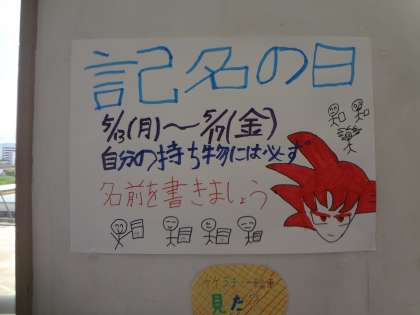 記名の日
5/13(月)〜5/17(金)
自分の持ち物には必ず
名前を書きましょう
見た